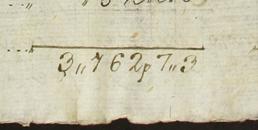 3„762p7„3